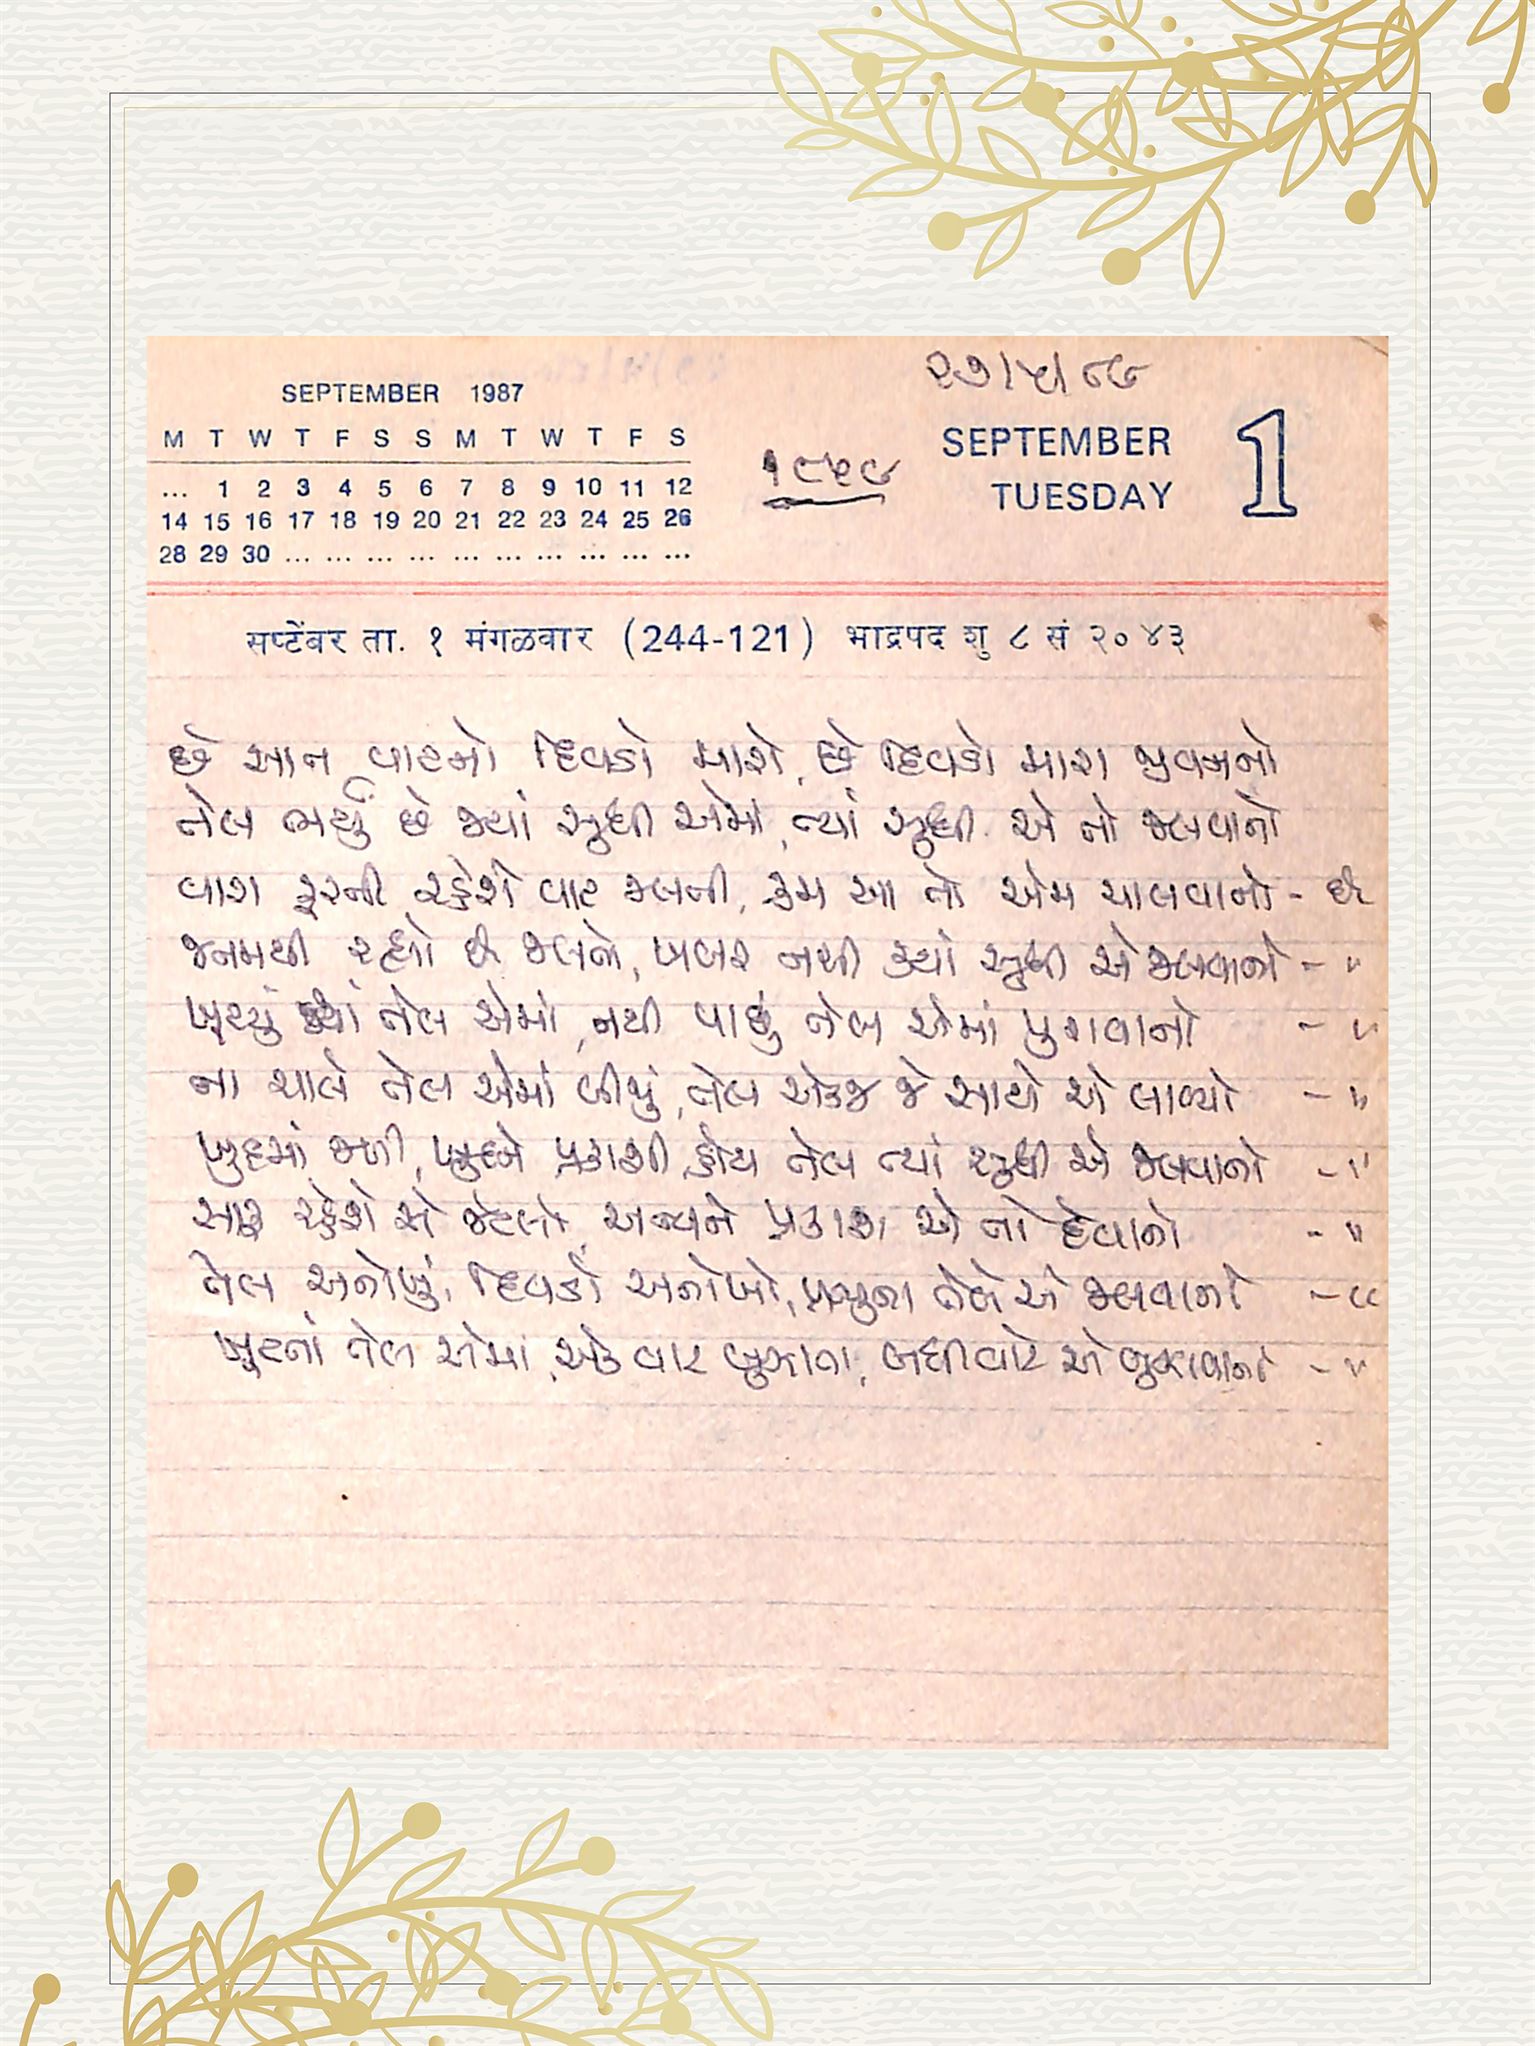 ૨૭/૫/૮૯
SEPTEMBER 1987
M T W T F S S M T W T F S
... 1 2 3 4 5 6 7 8 9 10 11 12
14 15 16 17 18 19 20 21 22 23 24 25 26
28 29 30 ... ... ... ... ... ... ... ... ... ...
SEPTEMBER
TUESDAY
1
सप्टेंबर ता. १ मंगळवार (244-121) भाद्रपद शु ८ सं २०४३
છે સાત વાટનો દિવડો મારો, છે દિવડો મારા જીવનનો
તેલ ભર્યું છે જ્યાં સુધી એમાં, ત્યાં સુધી એ તો જલવાનો
વારા ફરતી રહેશે વાટ જલતી, ક્રમ આ તો એમ ચાલવાનો - છે
જનમથી રહ્યો છે જલતો, ખબર નથી ક્યાં સુધી એ જલવાનો - "
ખૂટયું જ્યાં તેલ એમાં, નથી પાછું તેલ એમાં પુરાવાનો - "
ના ચાલે તેલ એમાં બીજું, તેલ એકજ જે સાથે એ લાવ્યો - "
ખુદમાં જળી, ખુદને પ્રકાશી, હોય તેલ ત્યાં સુધી એ જલવાનો - "
સાફ રહેશે એ જેટલો, અન્યને પ્રકાશ એ તો દેવાનો - "
તેલ અનોખું, દિવડો અનોખો, પ્રભુના તેલે એ જલવાનો - "
ખુટતાં તેલ એમાં, એક વાર બુઝાતા, બધીવાટે એ બુઝાવાનો - "